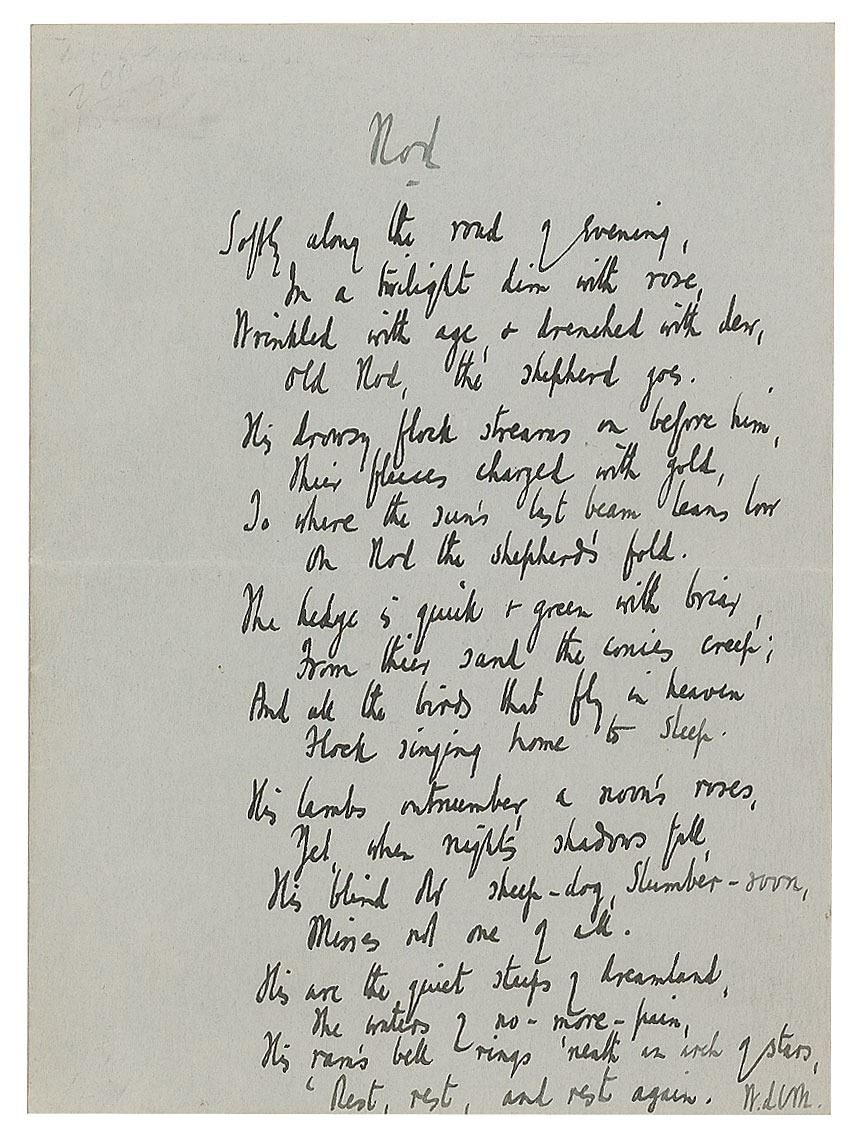 Nod
Softly along the road of evening,
In a twilight dim with rose,
Wrinkled with age, & drenched with dew,
Old Nod, the shepherd goes.
His drowsy flock streams on before him,
Their fleeces charged with gold,
To where the sun's last beam leans low
On Nod the shepherd's fold.
The hedge is quick & green with briar,
From their sand the conies creep;
And all the birds that fly in heaven
Flock singing home to sleep.
His lambs outnumber a noon's roses,
Yet, when night's shadows fall,
His blind old sheep-dog, Slumber-soon,
Misses not one of all.
His are the quiet steeps of dreamland,
The waters of no-more-pain,
His ram's bell rings 'neath an arch of stars,
'Rest, rest, and rest again. W.dlM.